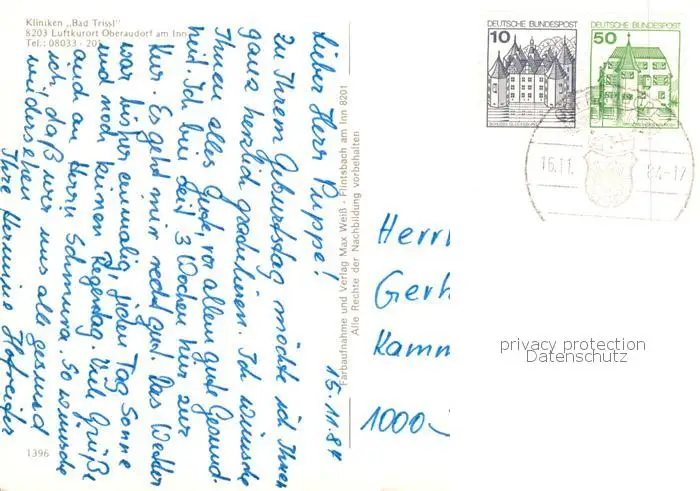 Kliniken „Bad Trissl"
8203 Luftkurort Oberaudorf am Inn
Tel.: 08033 - 201
15.11.84
Lieber Herr Puppe!
Zu Ihrem Geburtstag möchte ich Ihnen
ganz herzlich gratulieren. Ich wünsche
Ihnen alles Gute, vor allem gute Gesund-
heit. Ich bin seit 3 Wochen hier zur
Kur. Es geht mir recht gut. Das Wetter
war bisher einmalig, jeden Tag Sonne
und noch keinen Regentag. Viele Grüße
auch an Herrn Schmura. So wünsche
ich, daß wir uns alle gesund
wiedersehen
Ihre Hermine Hofreiter
1396
Farbaufnahme und Verlag Max Weiß - Flintsbach am Inn 8201
Alle Rechte der Nachbildung vorbehalten
DEUTSCHE BUNDESPOST
10
SCHLOSS GLÜCKSBURG
DEUTSCHE BUNDESPOST
50
16.11. 84-17
Herrn
Gerh
Kamm
1000
privacy protection
Datenschutz